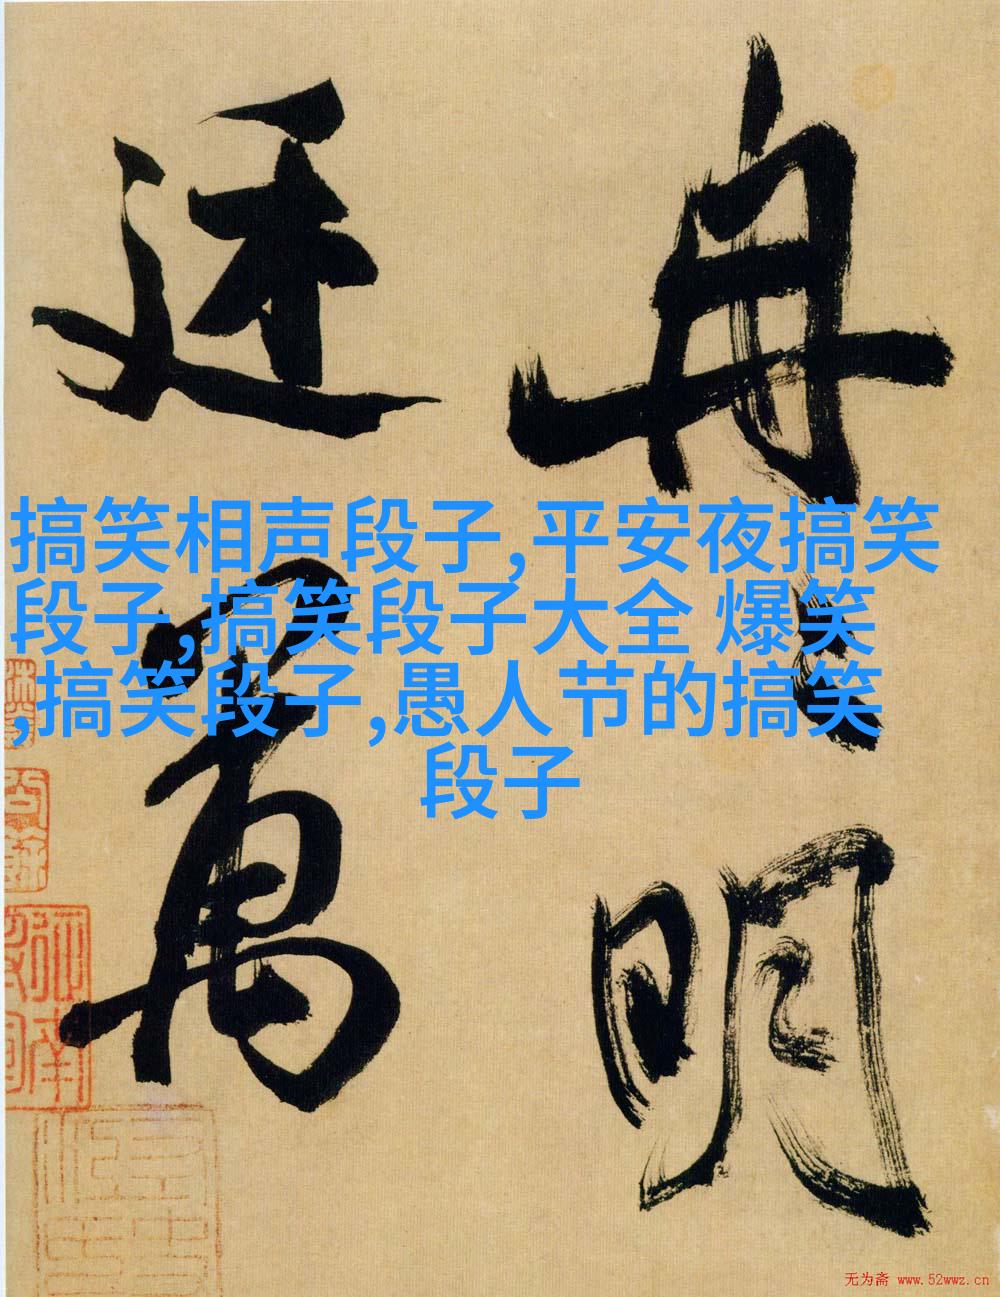 冉々明
廷萬
搞笑相声段子,平安夜搞笑
段子,搞笑段子大全 爆笑
,搞笑段子,愚人节的搞笑
段子
无为斋 www.52wwz.cn